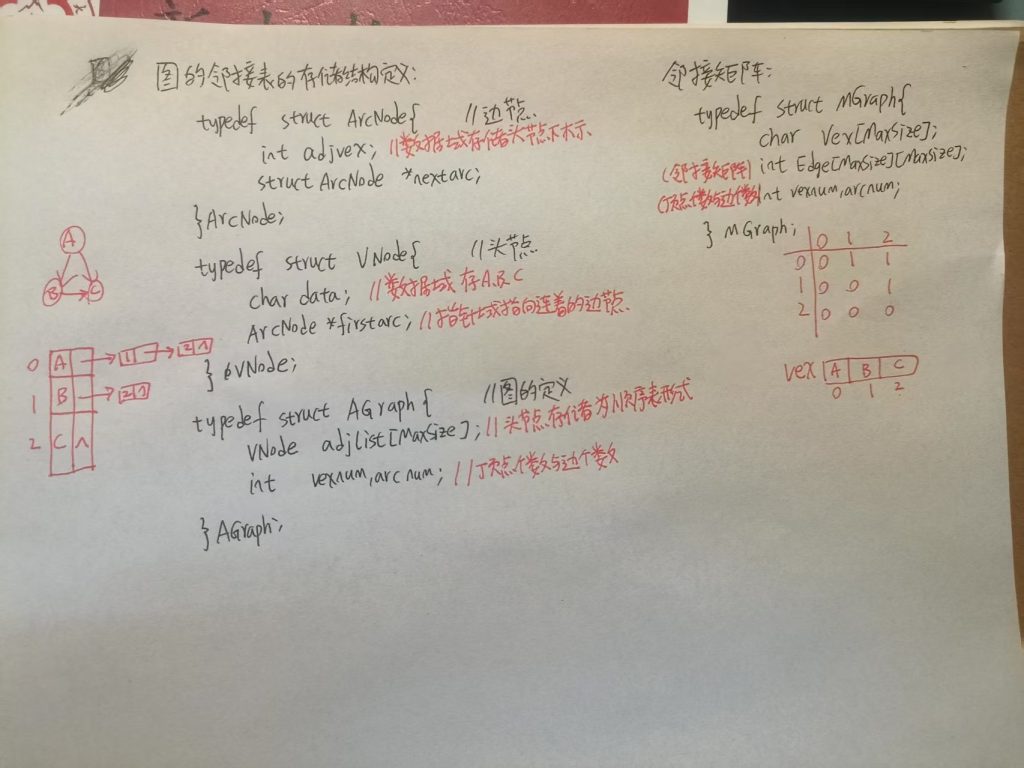 图的邻接表的存储结构定义:
typedef struct ArcNode{ //边节点
int adjvex; //数据域存储头节点下标
struct ArcNode *nextarc;
}ArcNode;
typedef struct VNode{ //头节点
char data; //数据域存A.B.C
ArcNode *firstarc; //指针域指向连着的边节点
} VNode;
typedef struct AGraph{ //图的定义
VNode adjlist[MaxSize]; //头节点存储为顺序表形式
int vexnum,arcnum; //顶点个数与边个数
} AGraph;
A
B C
0 A 1 2 ∧
1 B 2 ∧
2 C ∧
邻接矩阵:
typedef struct MGraph{
char Vex[MaxSize];
(邻接矩阵) int Edge[MaxSize][MaxSize];
(顶点个数与边个数) int vexnum,arcnum;
} MGraph;
0 1 2
0 0 1 1
1 0 0 1
2 0 0 0
vex A B C
0 1 2